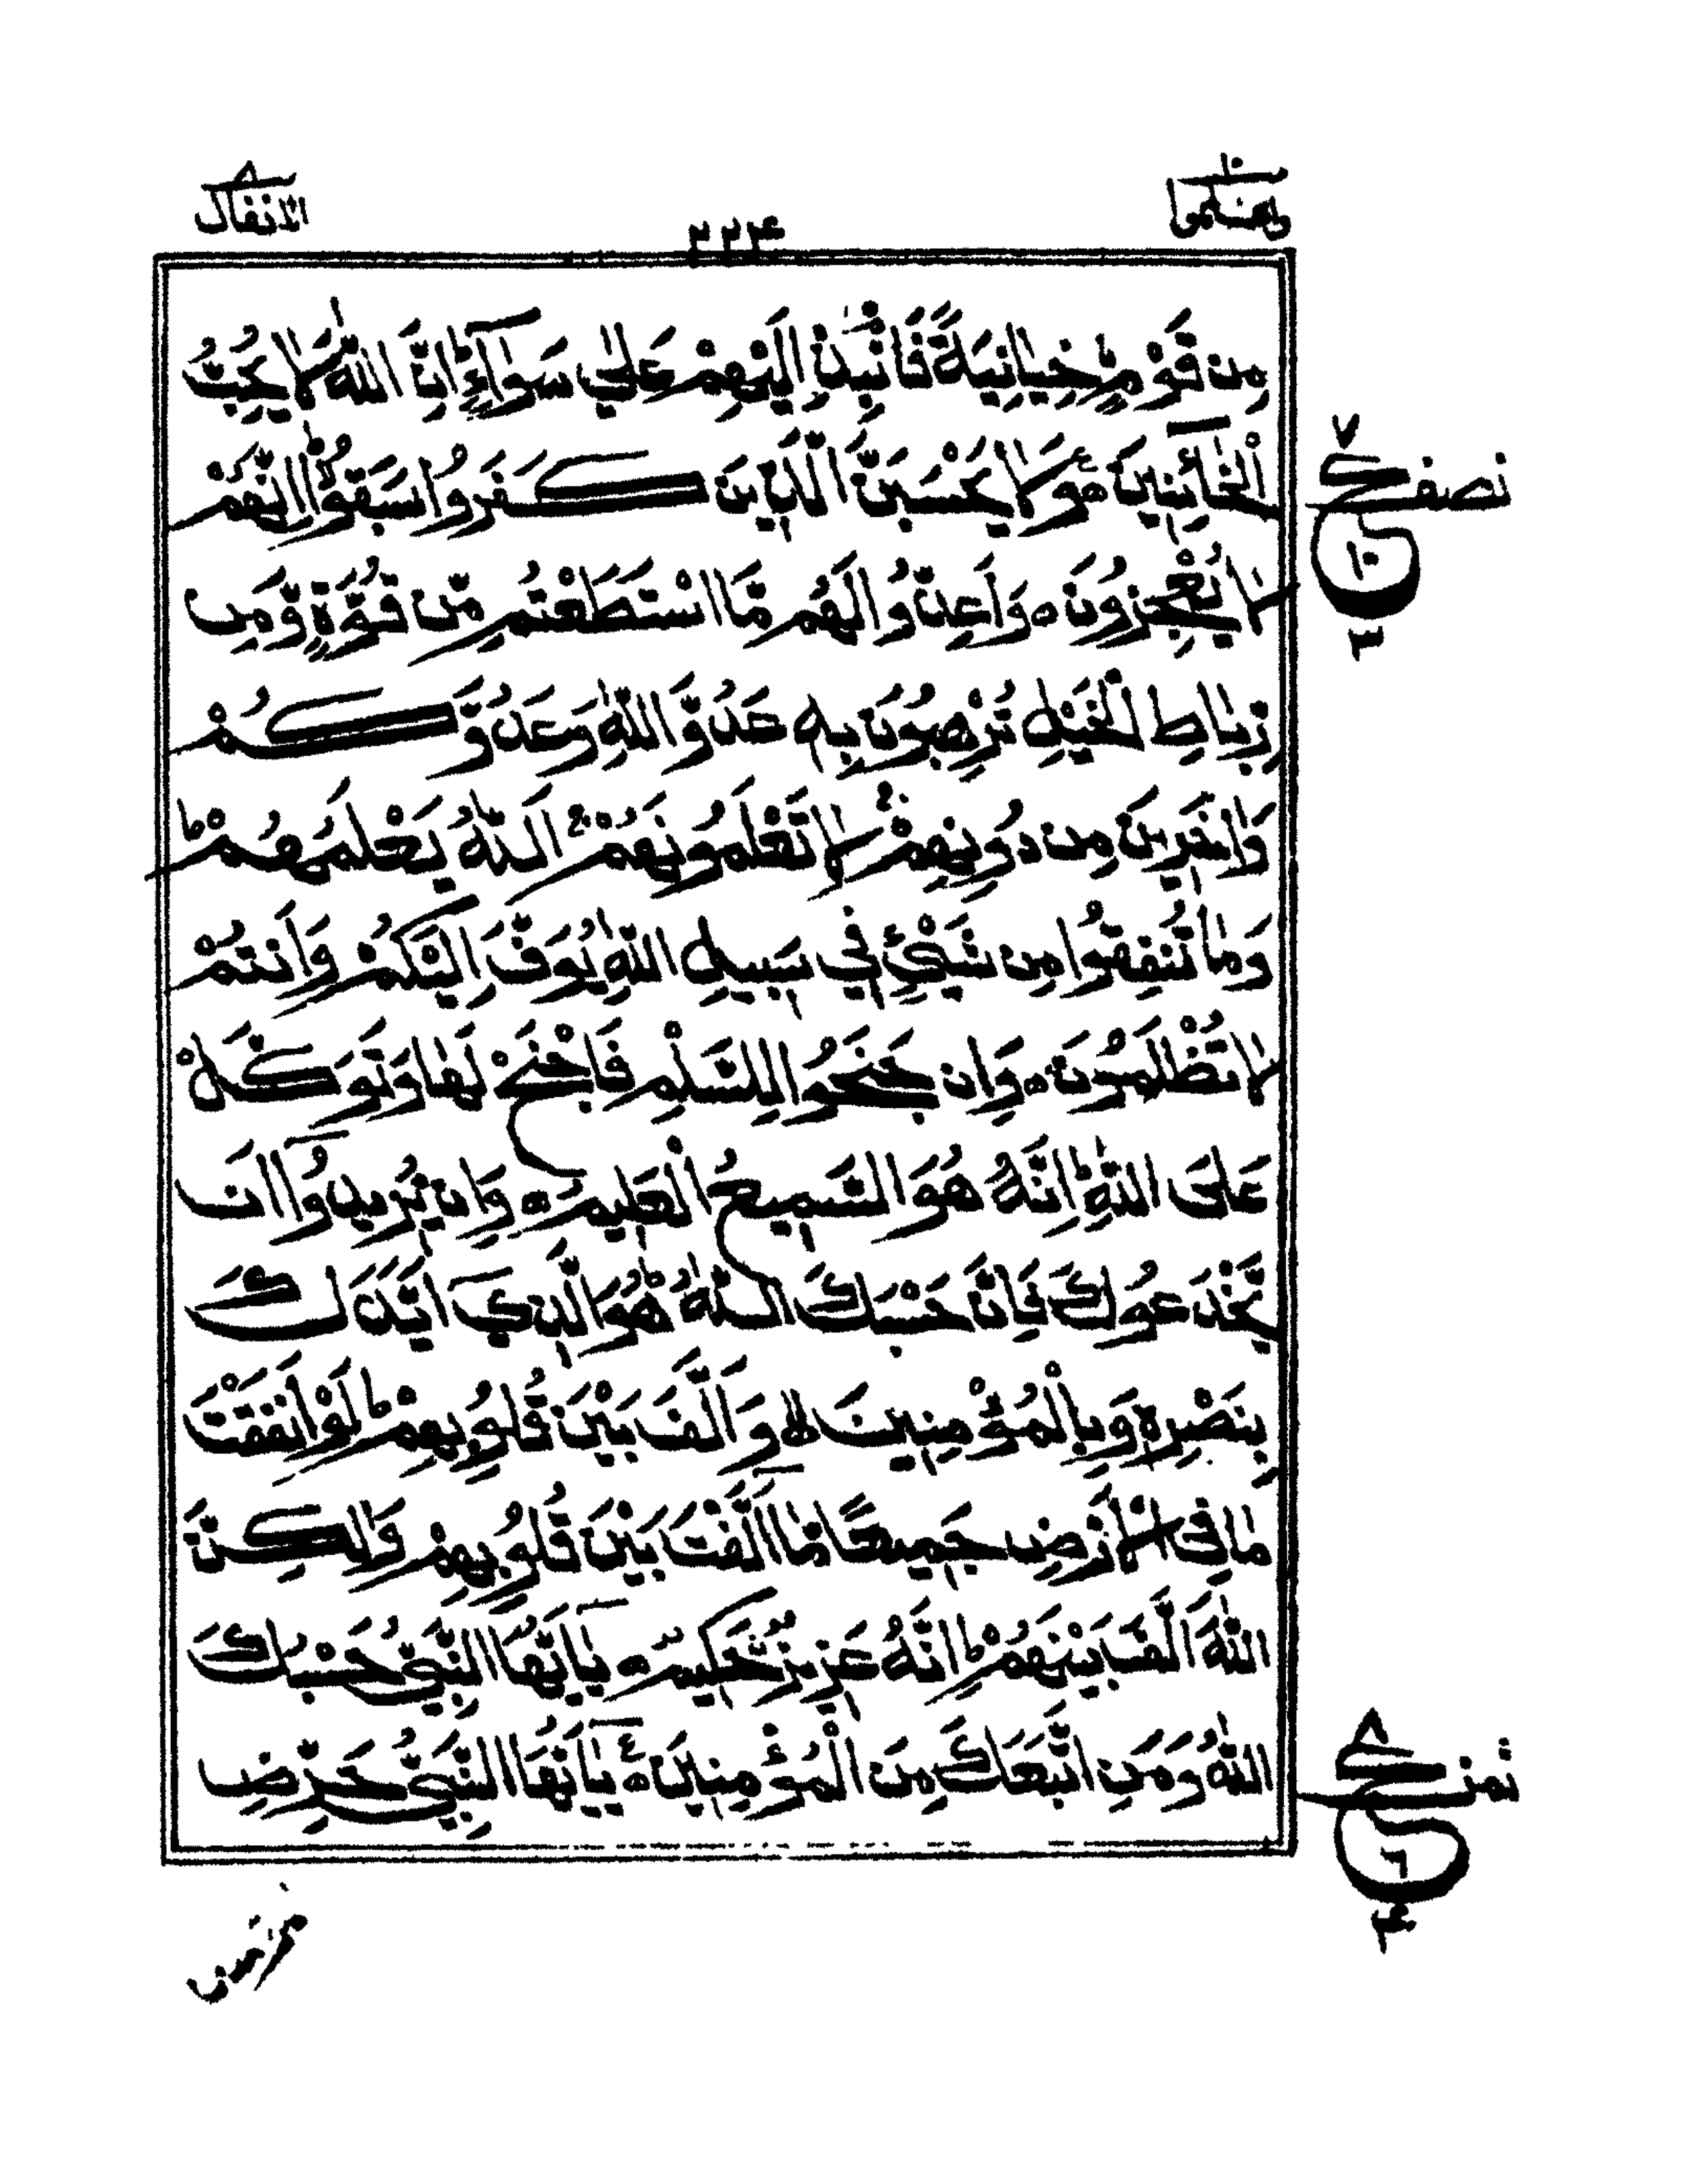 واعلموا ١٠
٢٢٤
الانفال ٨
مِن قَوْمٍ خِيَانَةً فَانْۢبِذْ اِلَيْهِمْ عَلٰي سَوَآءٍ ؕ اِنَّ اللّٰهَ لَا يُحِبُّ
الْخَآئِنِينَ ۝ ع وَلَا يَحْسَبَنَّ الَّذِينَ كَفَرُوا سَبَقُوْا ؕ اِنَّهُمْ
لَا يُعْجِزُونَ ۝ وَاَعِدُّوا لَهُم مَّا اسْتَطَعْتُم مِّن قُوَّةٍ وَّمِن
رِّبَاطِ الْخَيْلِ تُرْهِبُونَ بِهٖ عَدُوَّ اللّٰهِ وَعَدُوَّكُمْ
وَاٰخَرِينَ مِن دُونِهِمْ لَا تَعْلَمُونَهُمْ اَللّٰهُ يَعْلَمُهُمْ ؕ
وَمَا تُنفِقُوا مِن شَيْءٍ فِي سَبِيلِ اللّٰهِ يُوَفَّ اِلَيْكُمْ وَاَنتُمْ
لَا تُظْلَمُونَ ۝ وَاِن جَنَحُوا لِلسَّلْمِ فَاجْنَحْ لَهَا وَتَوَكَّلْ
عَلَى اللّٰهِ ؕ اِنَّهٗ هُوَ السَّمِيعُ الْعَلِيمُ ۝ وَاِن يُّرِيدُوٓا اَن
يَّخْدَعُوكَ فَاِنَّ حَسْبَكَ اللّٰهُ ؕ هُوَ الَّذِيٓ اَيَّدَكَ
بِنَصْرِهٖ وَبِالْمُؤْمِنِينَ ۙ وَاَلَّفَ بَيْنَ قُلُوبِهِمْ ؕ لَوْ اَنفَقْتَ
مَا فِي الْاَرْضِ جَمِيعًا مَّآ اَلَّفْتَ بَيْنَ قُلُوبِهِمْ وَلٰكِنَّ
اللّٰهَ اَلَّفَ بَيْنَهُمْ ؕ اِنَّهٗ عَزِيزٌ حَكِيمٌ ۝ يَآ اَيُّهَا النَّبِيُّ حَسْبُكَ
اللّٰهُ وَمَنِ اتَّبَعَكَ مِنَ الْمُؤْمِنِينَ ۝ ع يَآ اَيُّهَا النَّبِيُّ حَرِّضِ
نصف
٧
ع
١٠
٣
ثمن
٨
ع
٦
٤